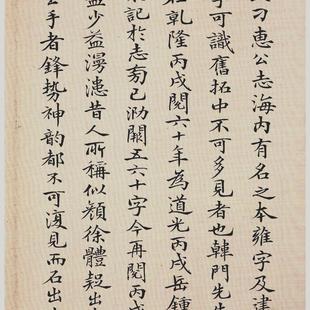 刁惠公志海内有名之本雍字及建
可識舊拓中不可多見者也韓門先生
在乾隆丙戌閱六十年為道光丙戌岳鍾
記於志已泐闕五六十字今再閱丙戌
益少益漫漶昔人所稱似顏徐體出
手者鋒勢神韵都不可復見而石出